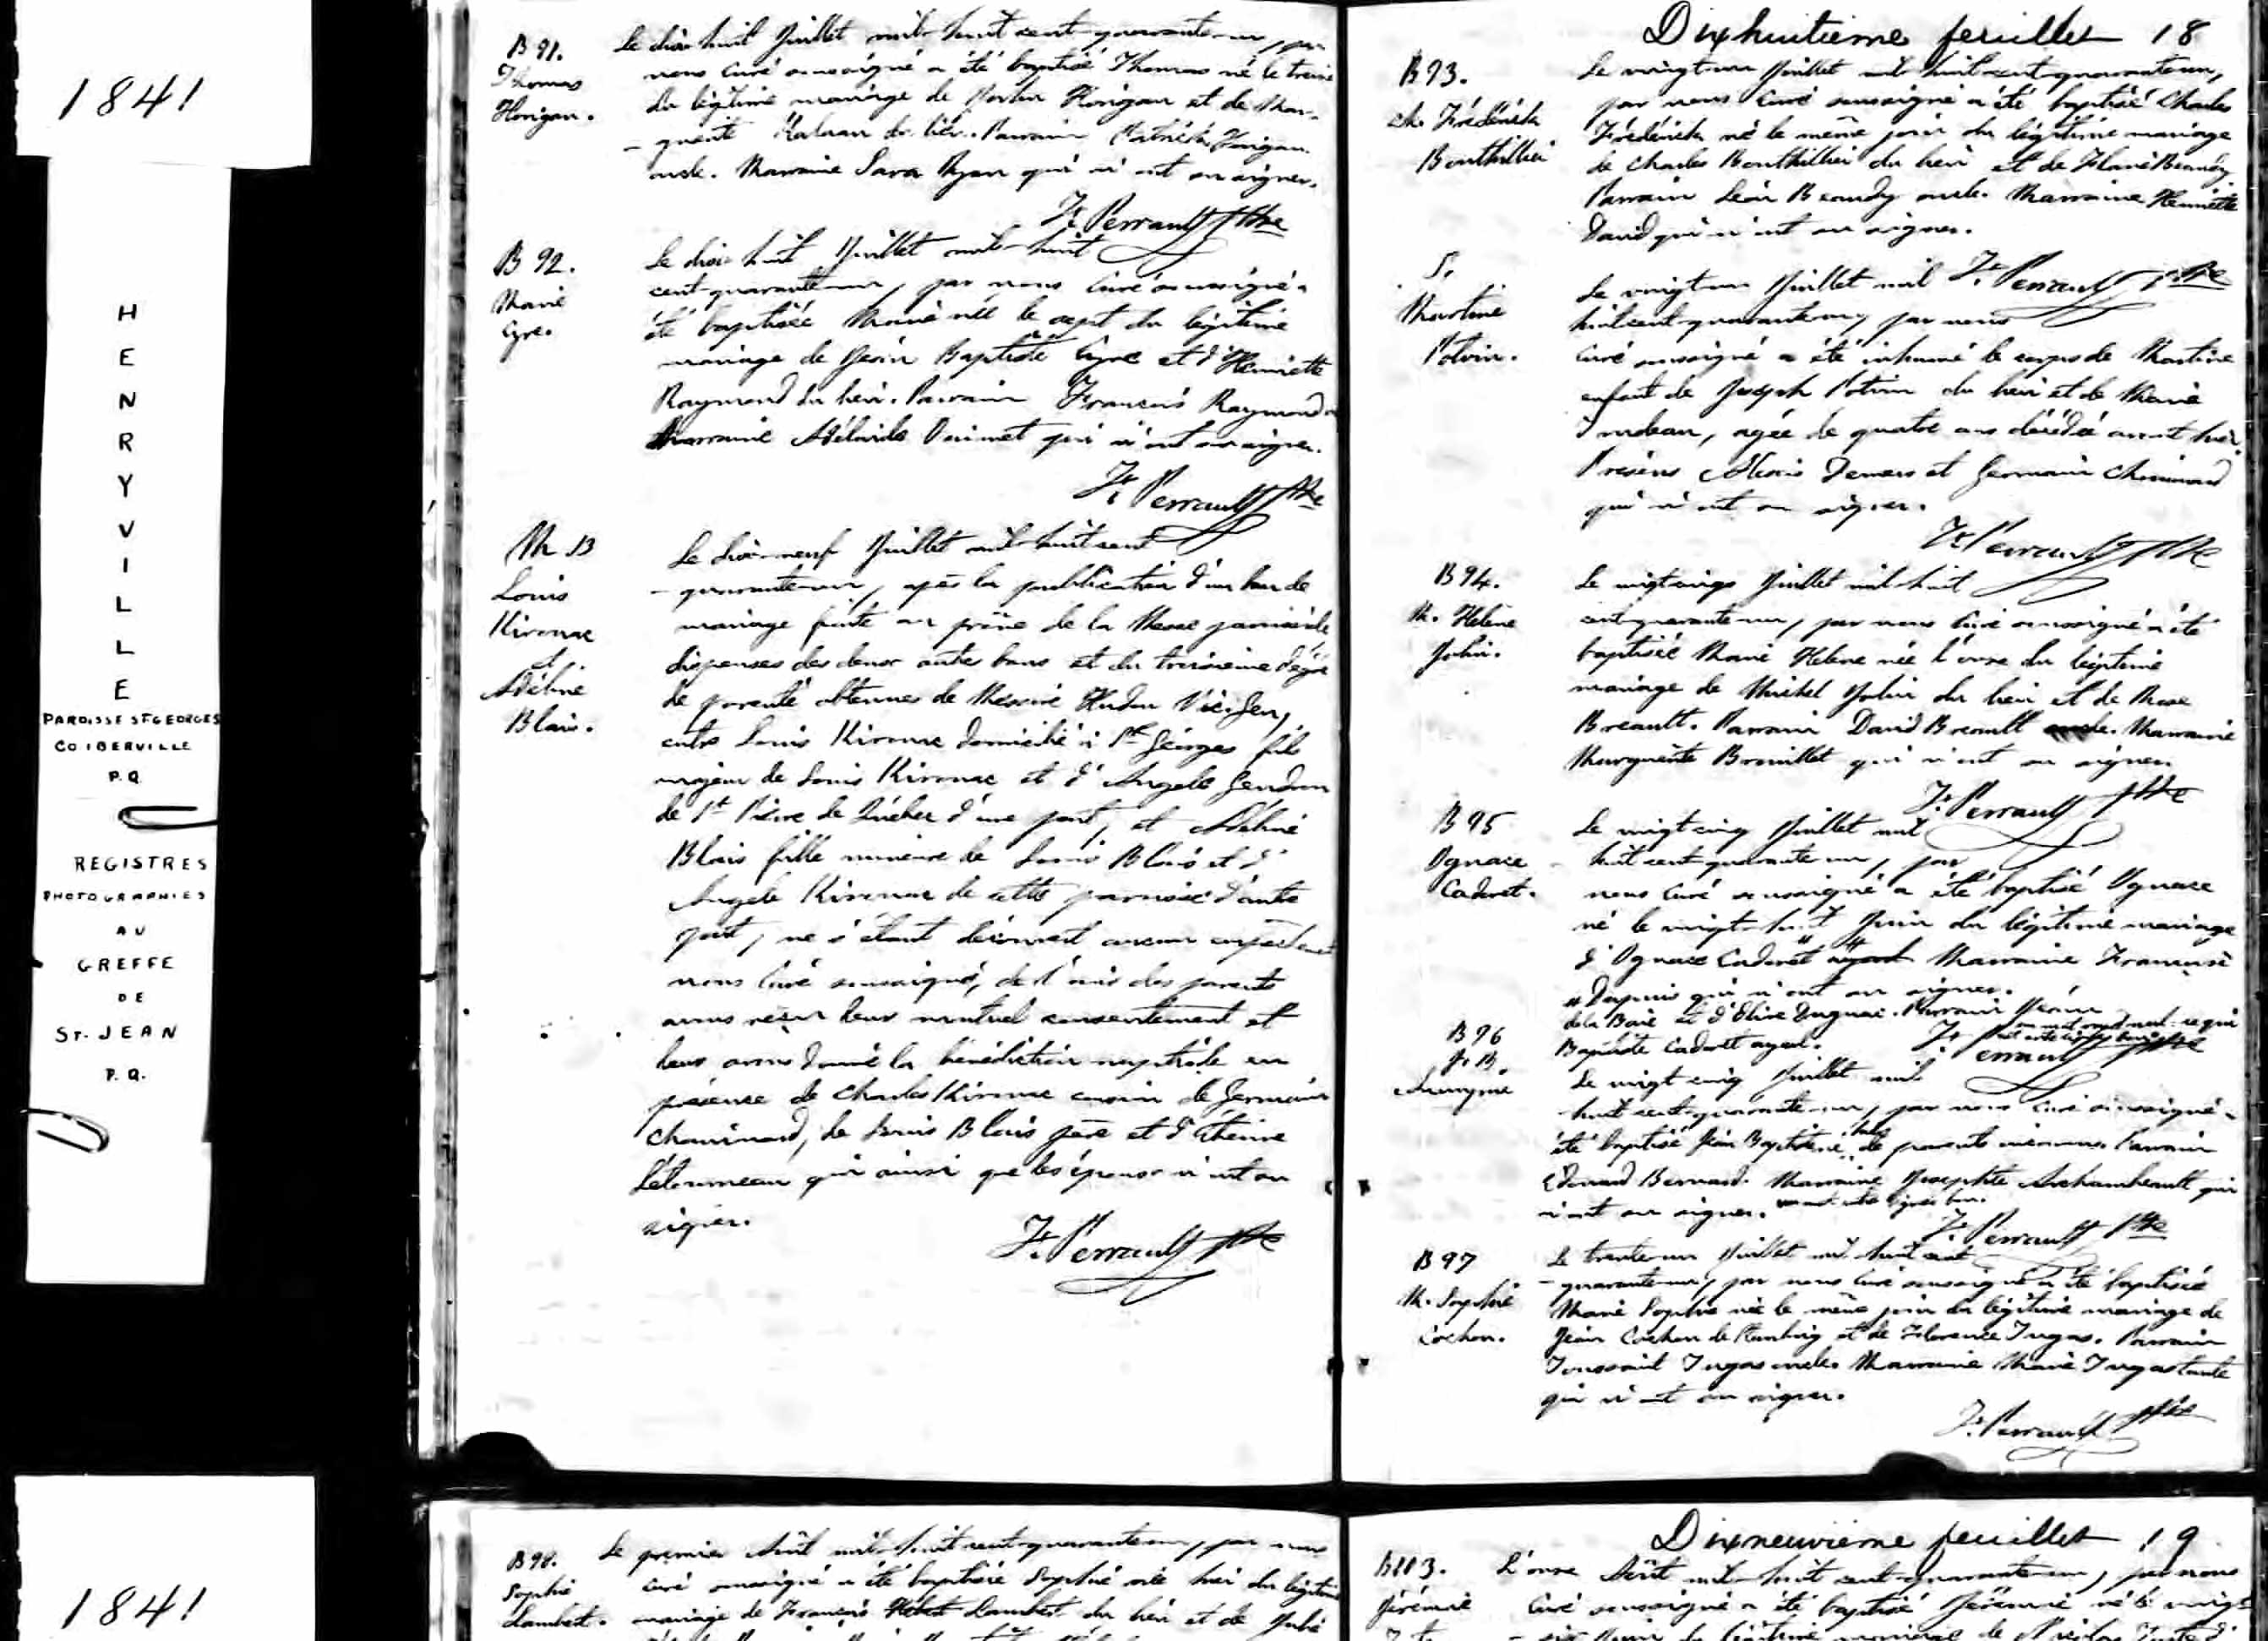 1841
HENRYVILLE
PAROISSE ST GEORGES
CO IBERVILLE
P.Q.
REGISTRES
PHOTOGRAPHIES
AU
GREFFE
DE
ST. JEAN
P.Q.
B 91.
Thomas
Horigan.
Le dix-huit Juillet mil-huit cent-quarante-un, par
nous Curé soussigné a été baptisé Thomas né le treize
du légitime mariage de Horigan et de Mar-
-guerite du lieu. Parrain Patrick Horigan
oncle. Marraine Sara Ryan qui n'ont su signer.
Fr. Perrault Ptre
B 92.
Marie
Cyre.
Le dix-huit Juillet mil-huit
cent-quarante-un, par nous Curé soussigné a
été baptisée Marie née le sept du légitime
mariage de Jean Baptiste Cyre et d'Henriette
Raymond du lieu. Parrain François Raymond
Marraine Adélaide Ouimet qui n'ont su signer.
Fr. Perrault Ptre
M 13
Louis
Kirouac
et
Adéline
Blais.
Le dix-neuf Juillet mil-huit cent
-quarante-un, après la publication d'un ban de
mariage faite au prône de la Messe paroissiale
dispenses des deux autres bans et du troisième dégré
de parenté obtenues de Messire Hudon Vic. Gen,
entre Louis Kirouac domicilié à St Georges fils
majeur de Louis Kirouac et d'Angele Gendron
de St Pierre de Québec d'une part, et Adéline
Blais fille mineure de Louis Blais et d'
Angele Kirouac de cette paroisse d'autre
part, ne s'étant découvert aucun empêchement
nous Curé soussigné, de l'avis des parents
avons reçu leur mutuel consentement et
leur avons donné la bénédiction nuptiale en
présence de Charles Kirouac cousin de Germain
Chouinard, de Louis Blais père et d'Etienne
Létourneau qui ainsi que les époux n'ont su
signer.
Fr. Perrault Ptre
Dixhuitième feuillet 18
B 93.
Ch. Frédérick
Bouthillier
Le vingt-un Juillet mil-huit-cent-quarante-un,
par nous Curé soussigné a été baptisé Charles
Frédérick né le même jour du légitime mariage
de Charles Bouthillier du lieu et de Beaudry
Parrain Léon Beaudry oncle. Marraine Henriette
David qui n'ont su signer.
Fr. Perrault Ptre
S.
Martine
Potvin.
Le vingt-un Juillet mil
huit-cent-quarante-un, par nous
Curé soussigné a été inhumé le corps de Martine
enfant de Joseph Potvin du lieu et de Marie
agée de quatre ans décédée avant hier.
Présens Alexis Demers et Germain Chouinard
qui n'ont su signer.
Fr. Perrault Ptre
B 94.
M. Helene
Jolin.
Le vingt-cinq Juillet mil-huit
cent-quarante-un, par nous Curé soussigné a été
baptisée Marie Helene née l'onze du légitime
mariage de Michel Jolin du lieu et de
Breault. Parrain David Breault Marraine
Marguerite Brouillet qui n'ont su signer.
Fr. Perrault Ptre
B 95
Ignace
Cadoret.
Le vingt-cinq Juillet mil
huit-cent-quarante-un, par
nous Curé soussigné a été baptisé Ignace
né le vingt-huit Juin du légitime mariage
d'Ignace Cadoret Marraine Françoise
Dupuis qui n'ont su signer.
de la Baie et d'Olive Duguai. Parrain Jean
Baptiste Cadoret ayeul.
Fr. Perrault Ptre
B 96
J. B.
Anonyme
Le vingt-cinq Juillet mil
-huit-cent-quarante-un, par nous Curé soussigné a
été baptisé Jean Baptiste né de parents inconnus. Parrain
Edouard Bernard. Marraine Josephte Archambeault qui
n'ont su signer.
Fr. Perrault Ptre
B 97
M. Sophie
Cochon.
Le trente-un Juillet mil-huit-cent
-quarante-un, par nous Curé soussigné a été baptisée
Marie Sophie née le même jour du légitime mariage de
Jean Cochon de et de Florence Dugas. Parrain
Toussaint Dugas oncle. Marraine Marie Dugas tante
qui n'ont su signer.
Fr. Perrault Ptre
1841
B 98.
Sophie
Lambert.
Le premier Août mil-huit-cent-quarante-un, par nous
Curé soussigné a été baptisée Sophie née hier du légitime
mariage de François Lambert du lieu et de Julie
Dixneuvième feuillet 19
B103.
Jérémie
L'onze Août mil-huit-cent-quarante-un, par nous
Curé soussigné a été baptisé Jérémie né le vingt
-six Juin du légitime mariage de